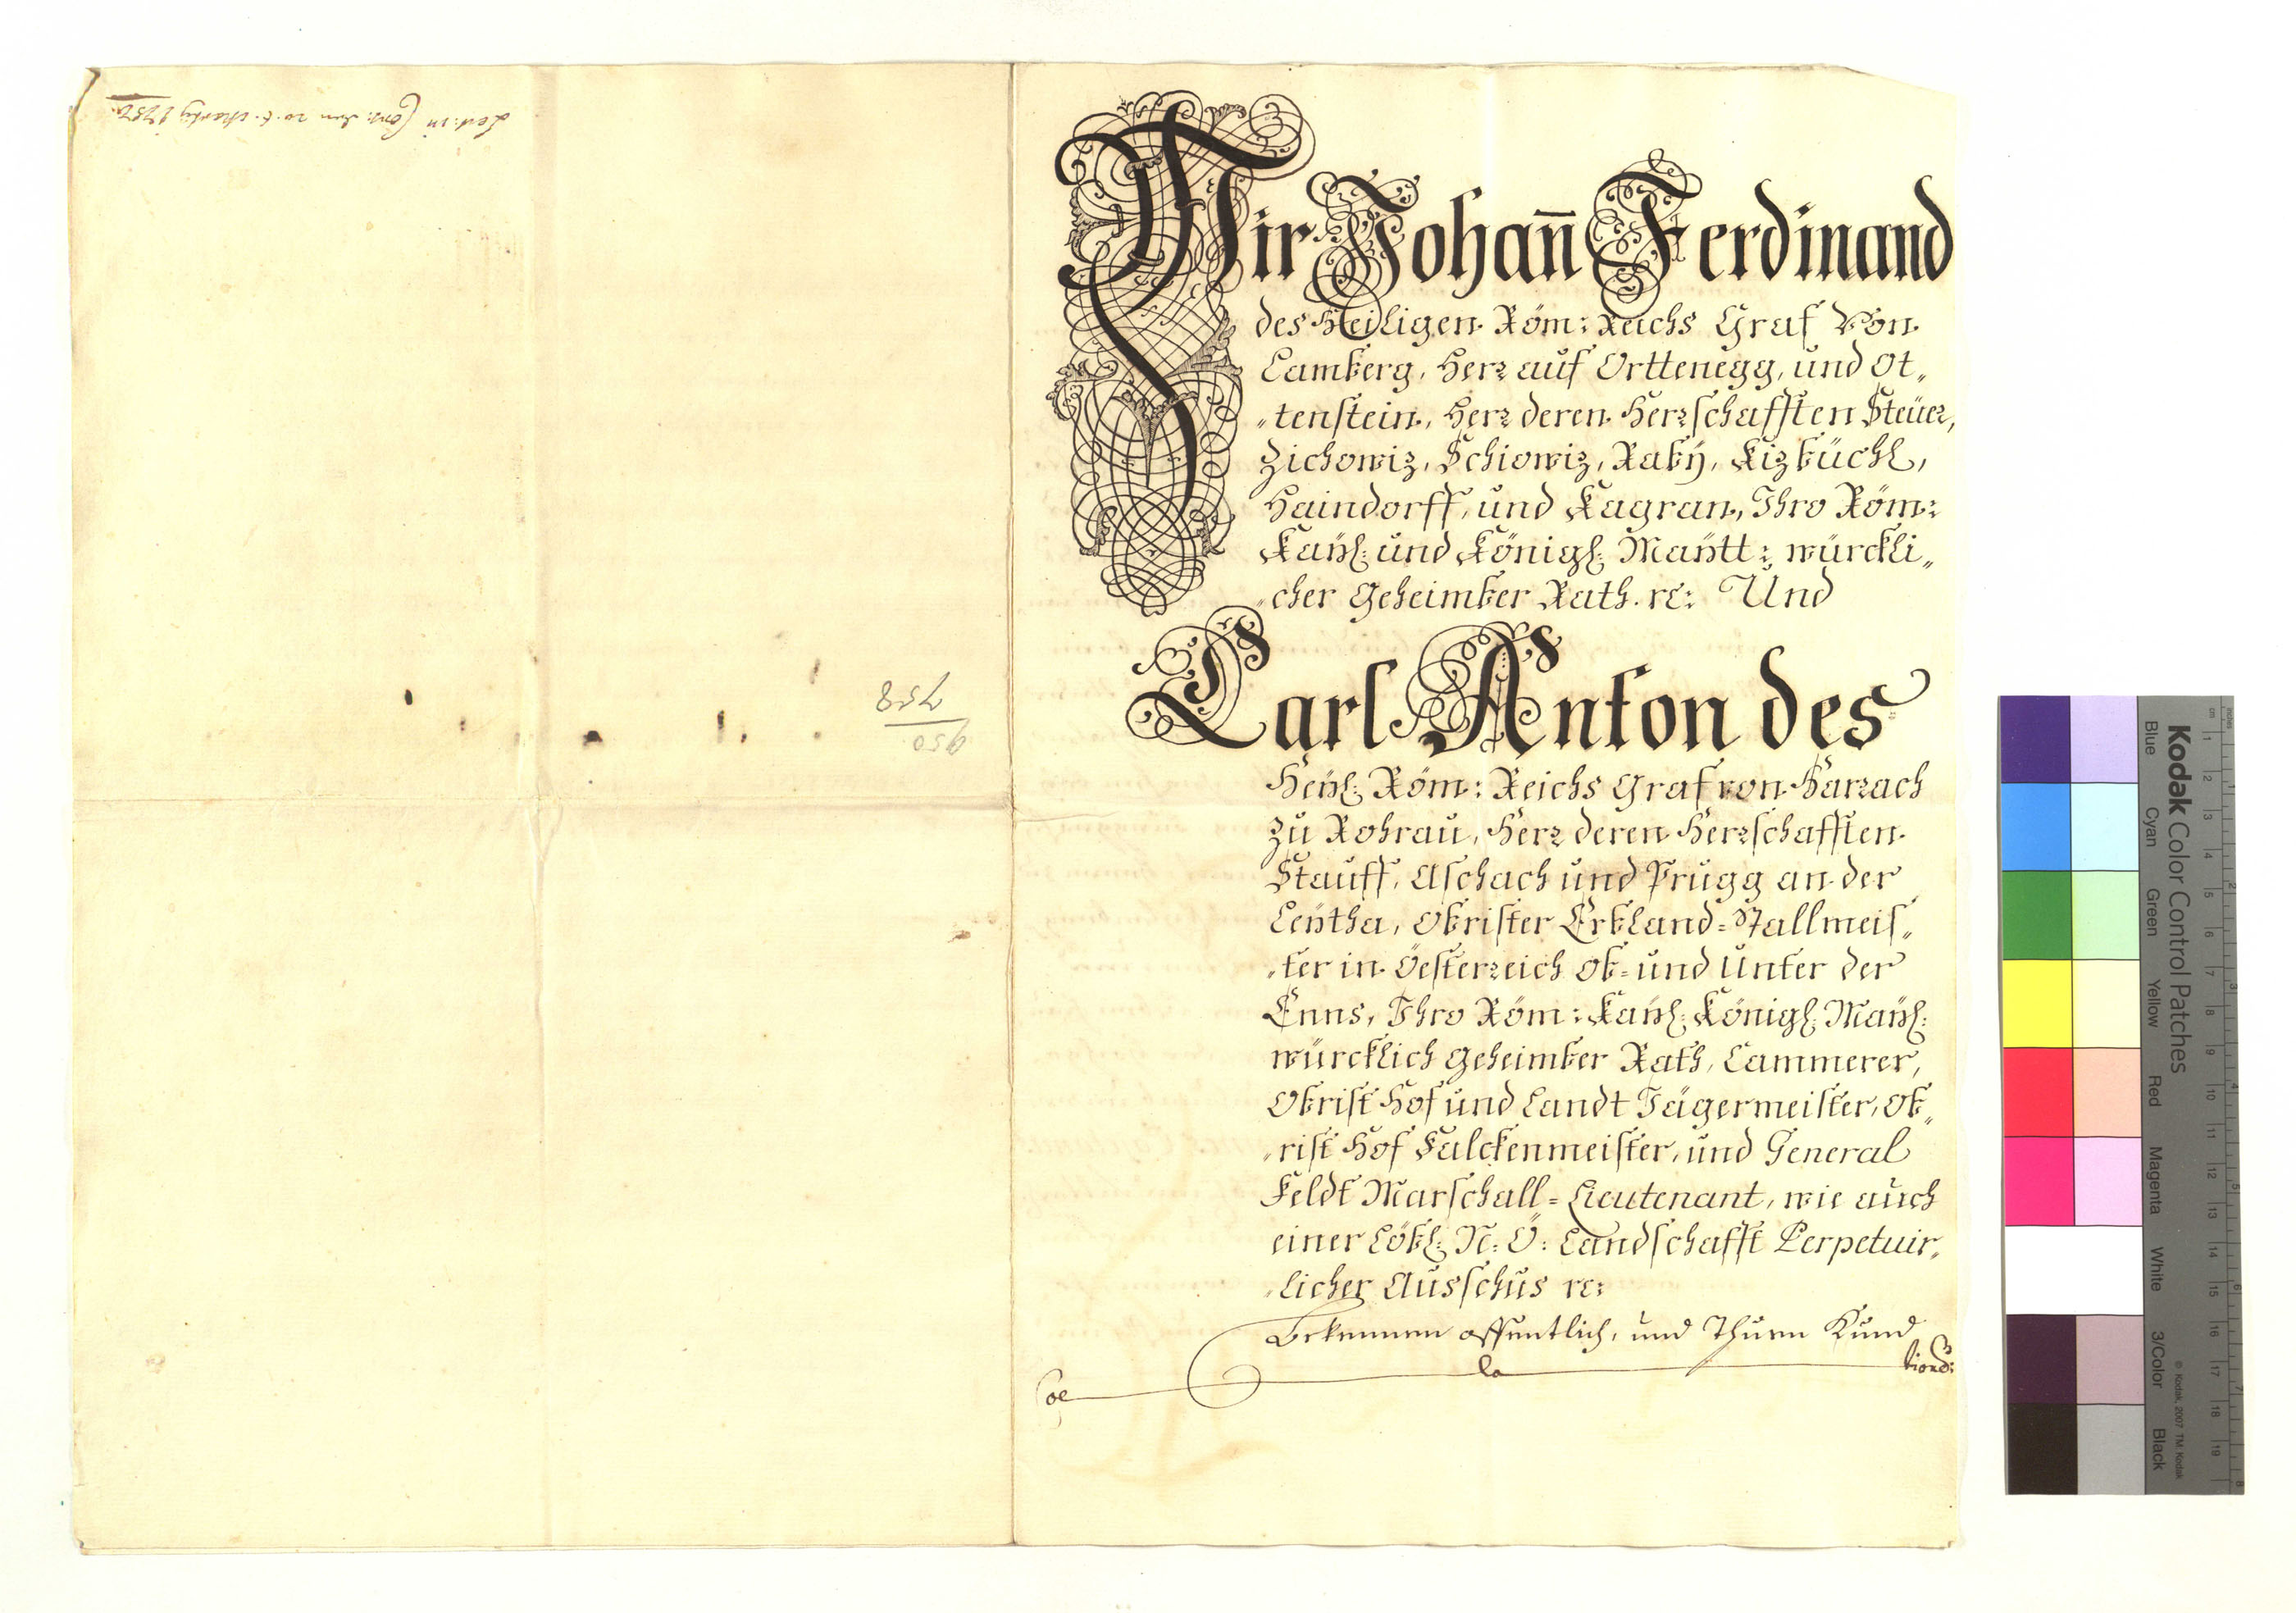 Wir Johañ Ferdinand
des Heiligen Röm: Reichs Graf Von
Lamberg, Herr auf Orttenegg, und Ot„
„tenstein, Herr deren Herrschafften Steüer,
Zichowiz, Schiowiz, Raby, Kizbüchl,
Haindorff, und Kagran, Ihro Röm:
Kaÿl: und Königl: Maÿtt: würckli„
„cher Geheimber Rath. rc: Und
Carl Anton des
Heÿl: Röm: Reichs Graf von Harrach
zu Rohrau, Herr deren Herrschafften
Stauff, Aschach und Prugg an der
Leÿtha, Obrister Erbland=Stallmeis„
„ter in Öesterreich ob= und Unter der
Enns, Ihro Röm: Kaÿl: Königl: Maÿl:
würcklich geheimber Rath, Cammerer,
Obrist Hof und Landt Jägermeister, Ob„
„rist Hof Falckenmeister, und General
Feldt Marschall=Lieutenant, wie auch
einer Löbl: N: Ö: Landschafft Perpetuir„
„licher Ausschus rc:
Bekennen offentlich, und Thuen Kund
Col la tiond:
950
758
Kodak Color Control Patches
Blue Cyan Green Yellow Red Magenta White 3/Color Black
© Kodak, 2007 TM: Kodak
cm 1 2 3 4 5 6 7 8 9 10 11 12 13 14 15 16 17 18 19
inches 1 2 3 4 5 6 7 8